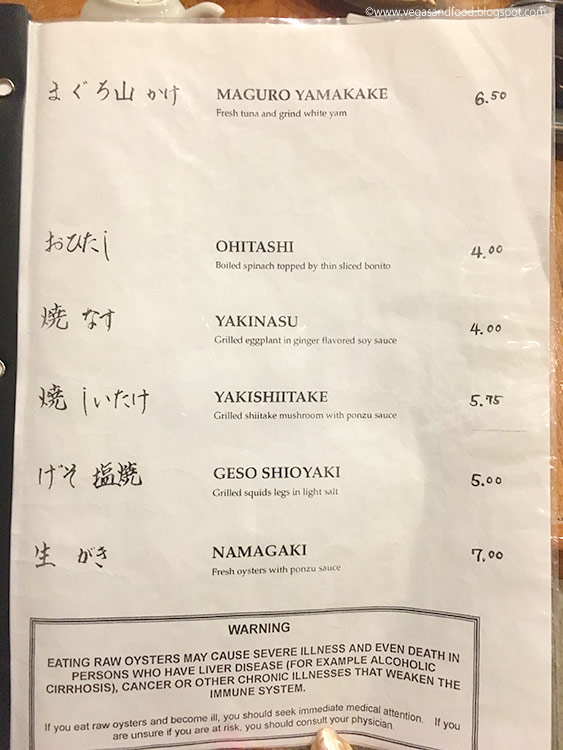 ©www.vegasandfood.blogspot.com
まぐろ山かけ MAGURO YAMAKAKE 6.50
Fresh tuna and grind white yam
おひたし OHITASHI 4.00
Boiled spinach topped by thin sliced bonito
焼なす YAKINASU 4.00
Grilled eggplant in ginger flavored soy sauce
焼しいたけ YAKISHIITAKE 5.75
Grilled shiitake mushroom with ponzu sauce
げそ塩焼 GESO SHIOYAKI 5.00
Grilled squids legs in light salt
生がき NAMAGAKI 7.00
Fresh oysters with ponzu sauce
WARNING
EATING RAW OYSTERS MAY CAUSE SEVERE ILLNESS AND EVEN DEATH IN
PERSONS WHO HAVE LIVER DISEASE (FOR EXAMPLE ALCOHOLIC
CIRRHOSIS), CANCER OR OTHER CHRONIC ILLNESSES THAT WEAKEN THE
IMMUNE SYSTEM.
If you eat raw oysters and become ill, you should seek immediate medical attention. If you
are unsure if you are at risk, you should consult your physician.